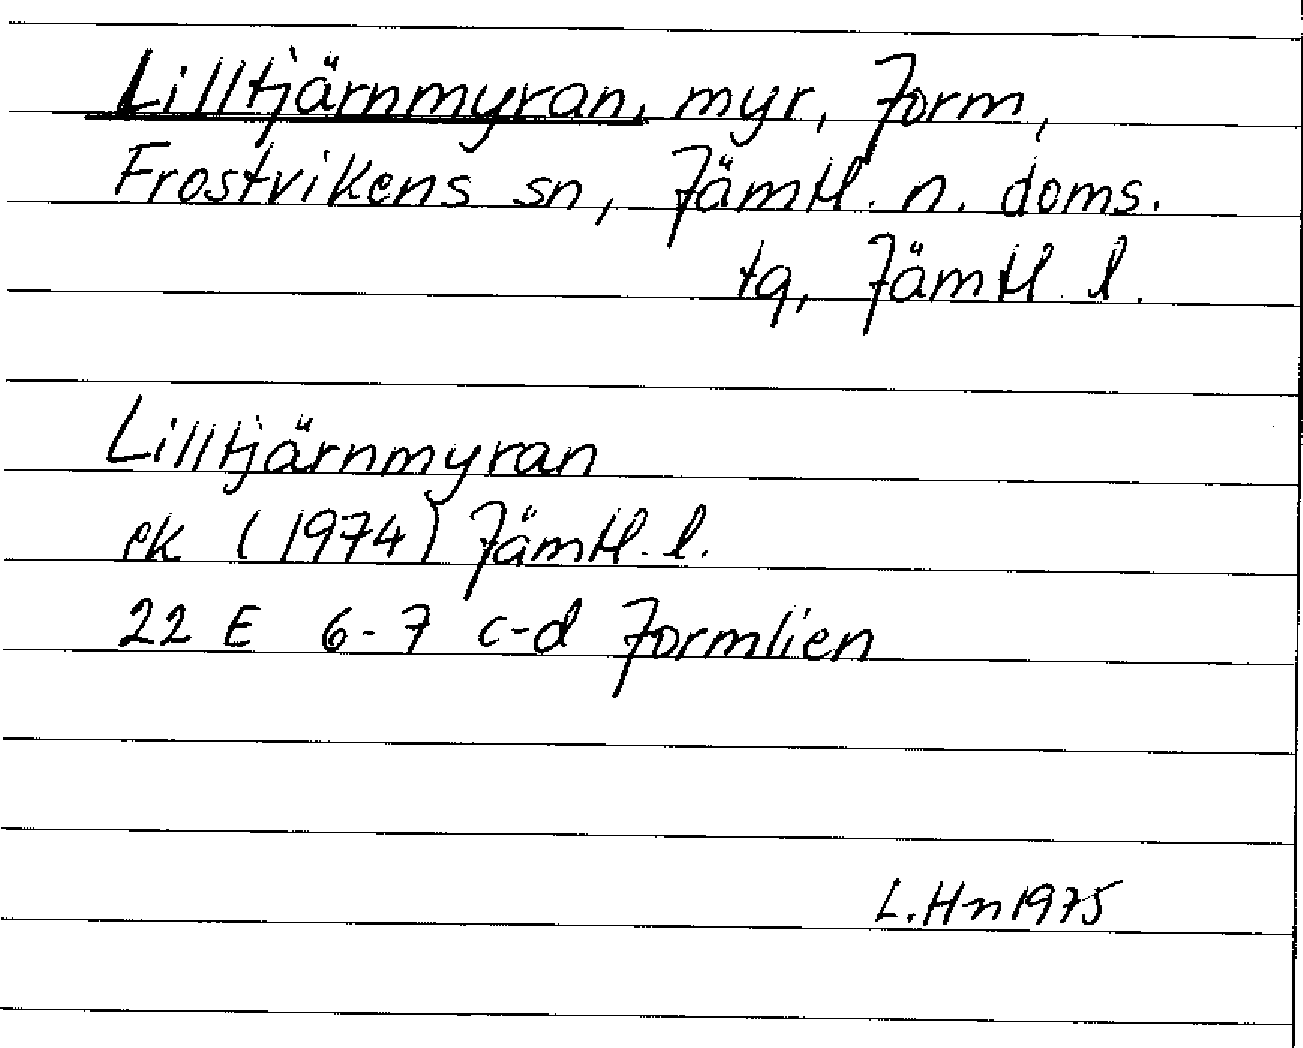 Lilltjärnmyran, myr, Jorm,
Frostvikens sn, Jämtl. n. doms.
tg, Jämtl. l.
Lilltjärnmyran
ek (1974) Jämtl. l.
22 E 6-7 c-d Jormlien
L. Hn 1975